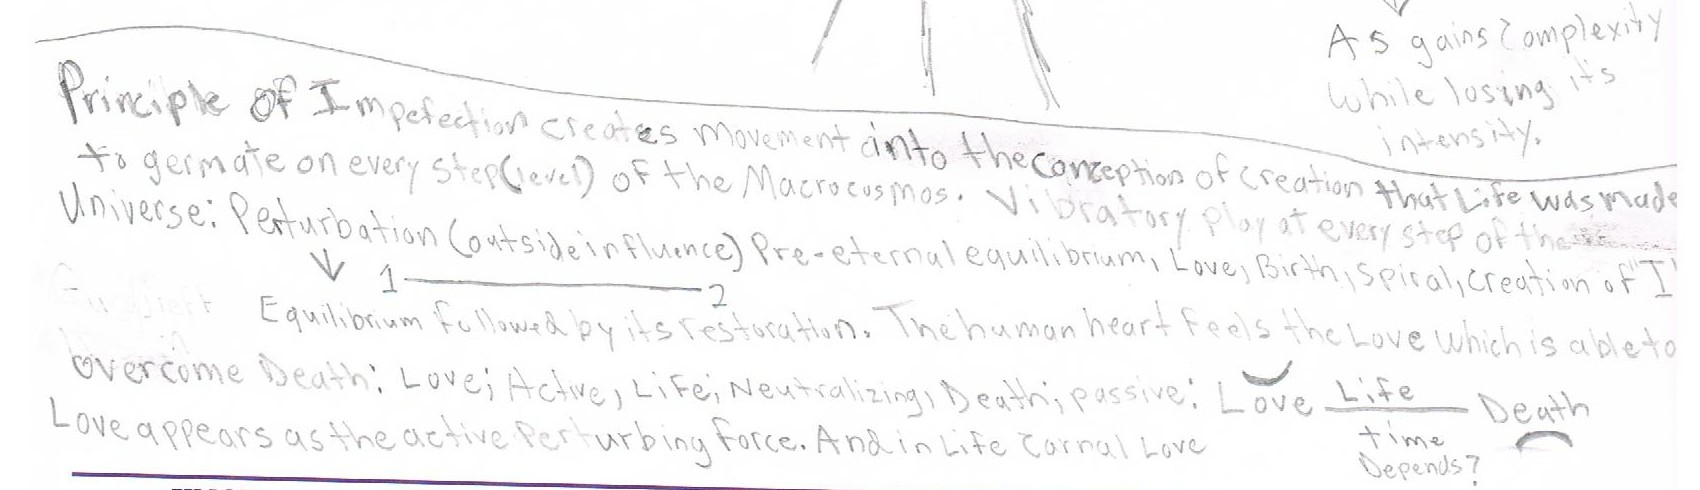 As gains Complexity
While losing its
intensity.
Principle of Impefection creates movement into the conception of creation that Life was made
to germate on every step (level) of the Macrocosmos. Vibratory play at every step of the
Universe: Perturbation (outside influence) Pre-eternal equilibrium, Love, Birth, Spiral, creation of "I"
1 2
Equilibrium followed by its restoration. The human heart feels the Love which is able to
overcome Death: Love; Active, Life; Neutralizing, Death; passive: Love Life Death
time
Depends?
Love appears as the active Perturbing force. And in Life Carnal Love